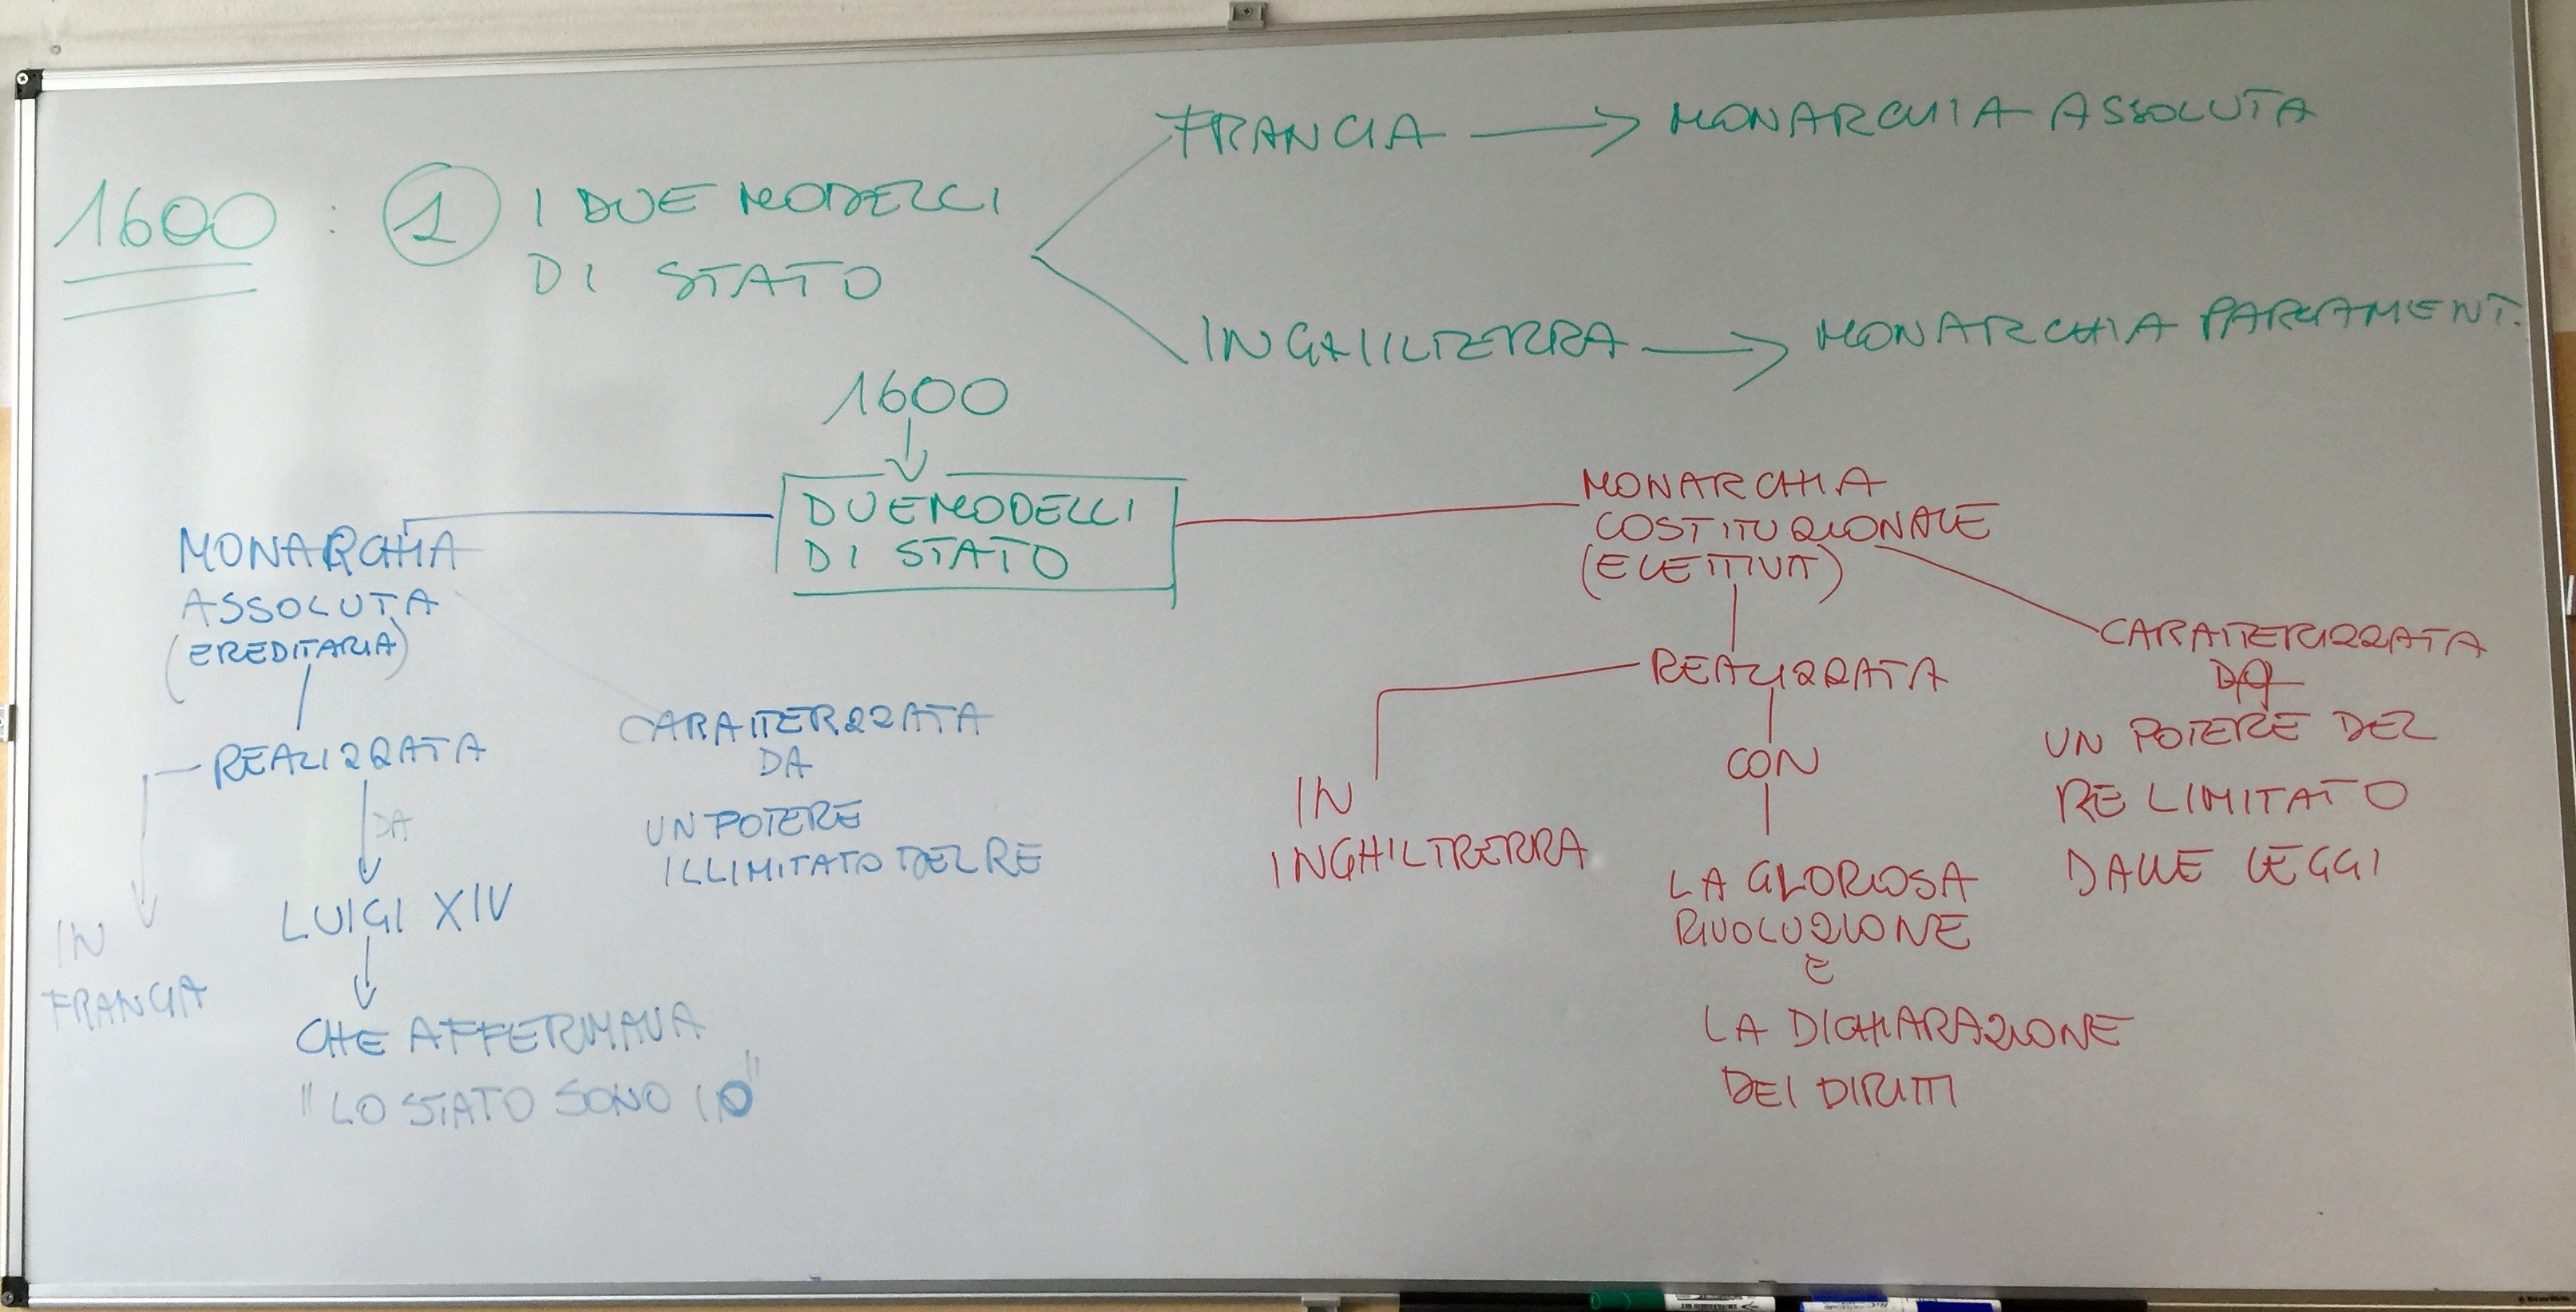 FRANCIA → MONARCHIA ASSOLUTA
1600 : 1 I DUE MODELLI
DI STATO
INGHILTERRA → MONARCHIA PARLAMENT.
1600
DUE MODELLI
DI STATO
MONARCHIA
ASSOLUTA
(EREDITARIA)
REALIZZATA
IN
FRANCIA
DA
LUIGI XIV
CHE AFFERMAVA
"LO STATO SONO IO"
CARATTERIZZATA
DA
UN POTERE
ILLIMITATO DEL RE
MONARCHIA
COSTITUZIONALE
(ELETTIVA)
REALIZZATA
IN
INGHILTRERRA
CON
LA GLORIOSA
RIVOLUZIONE
E
LA DICHIARAZIONE
DEI DIRITTI
CARATTERIZZATA
DA
UN POTERE DEL
RE LIMITATO
DALLE LEGGI